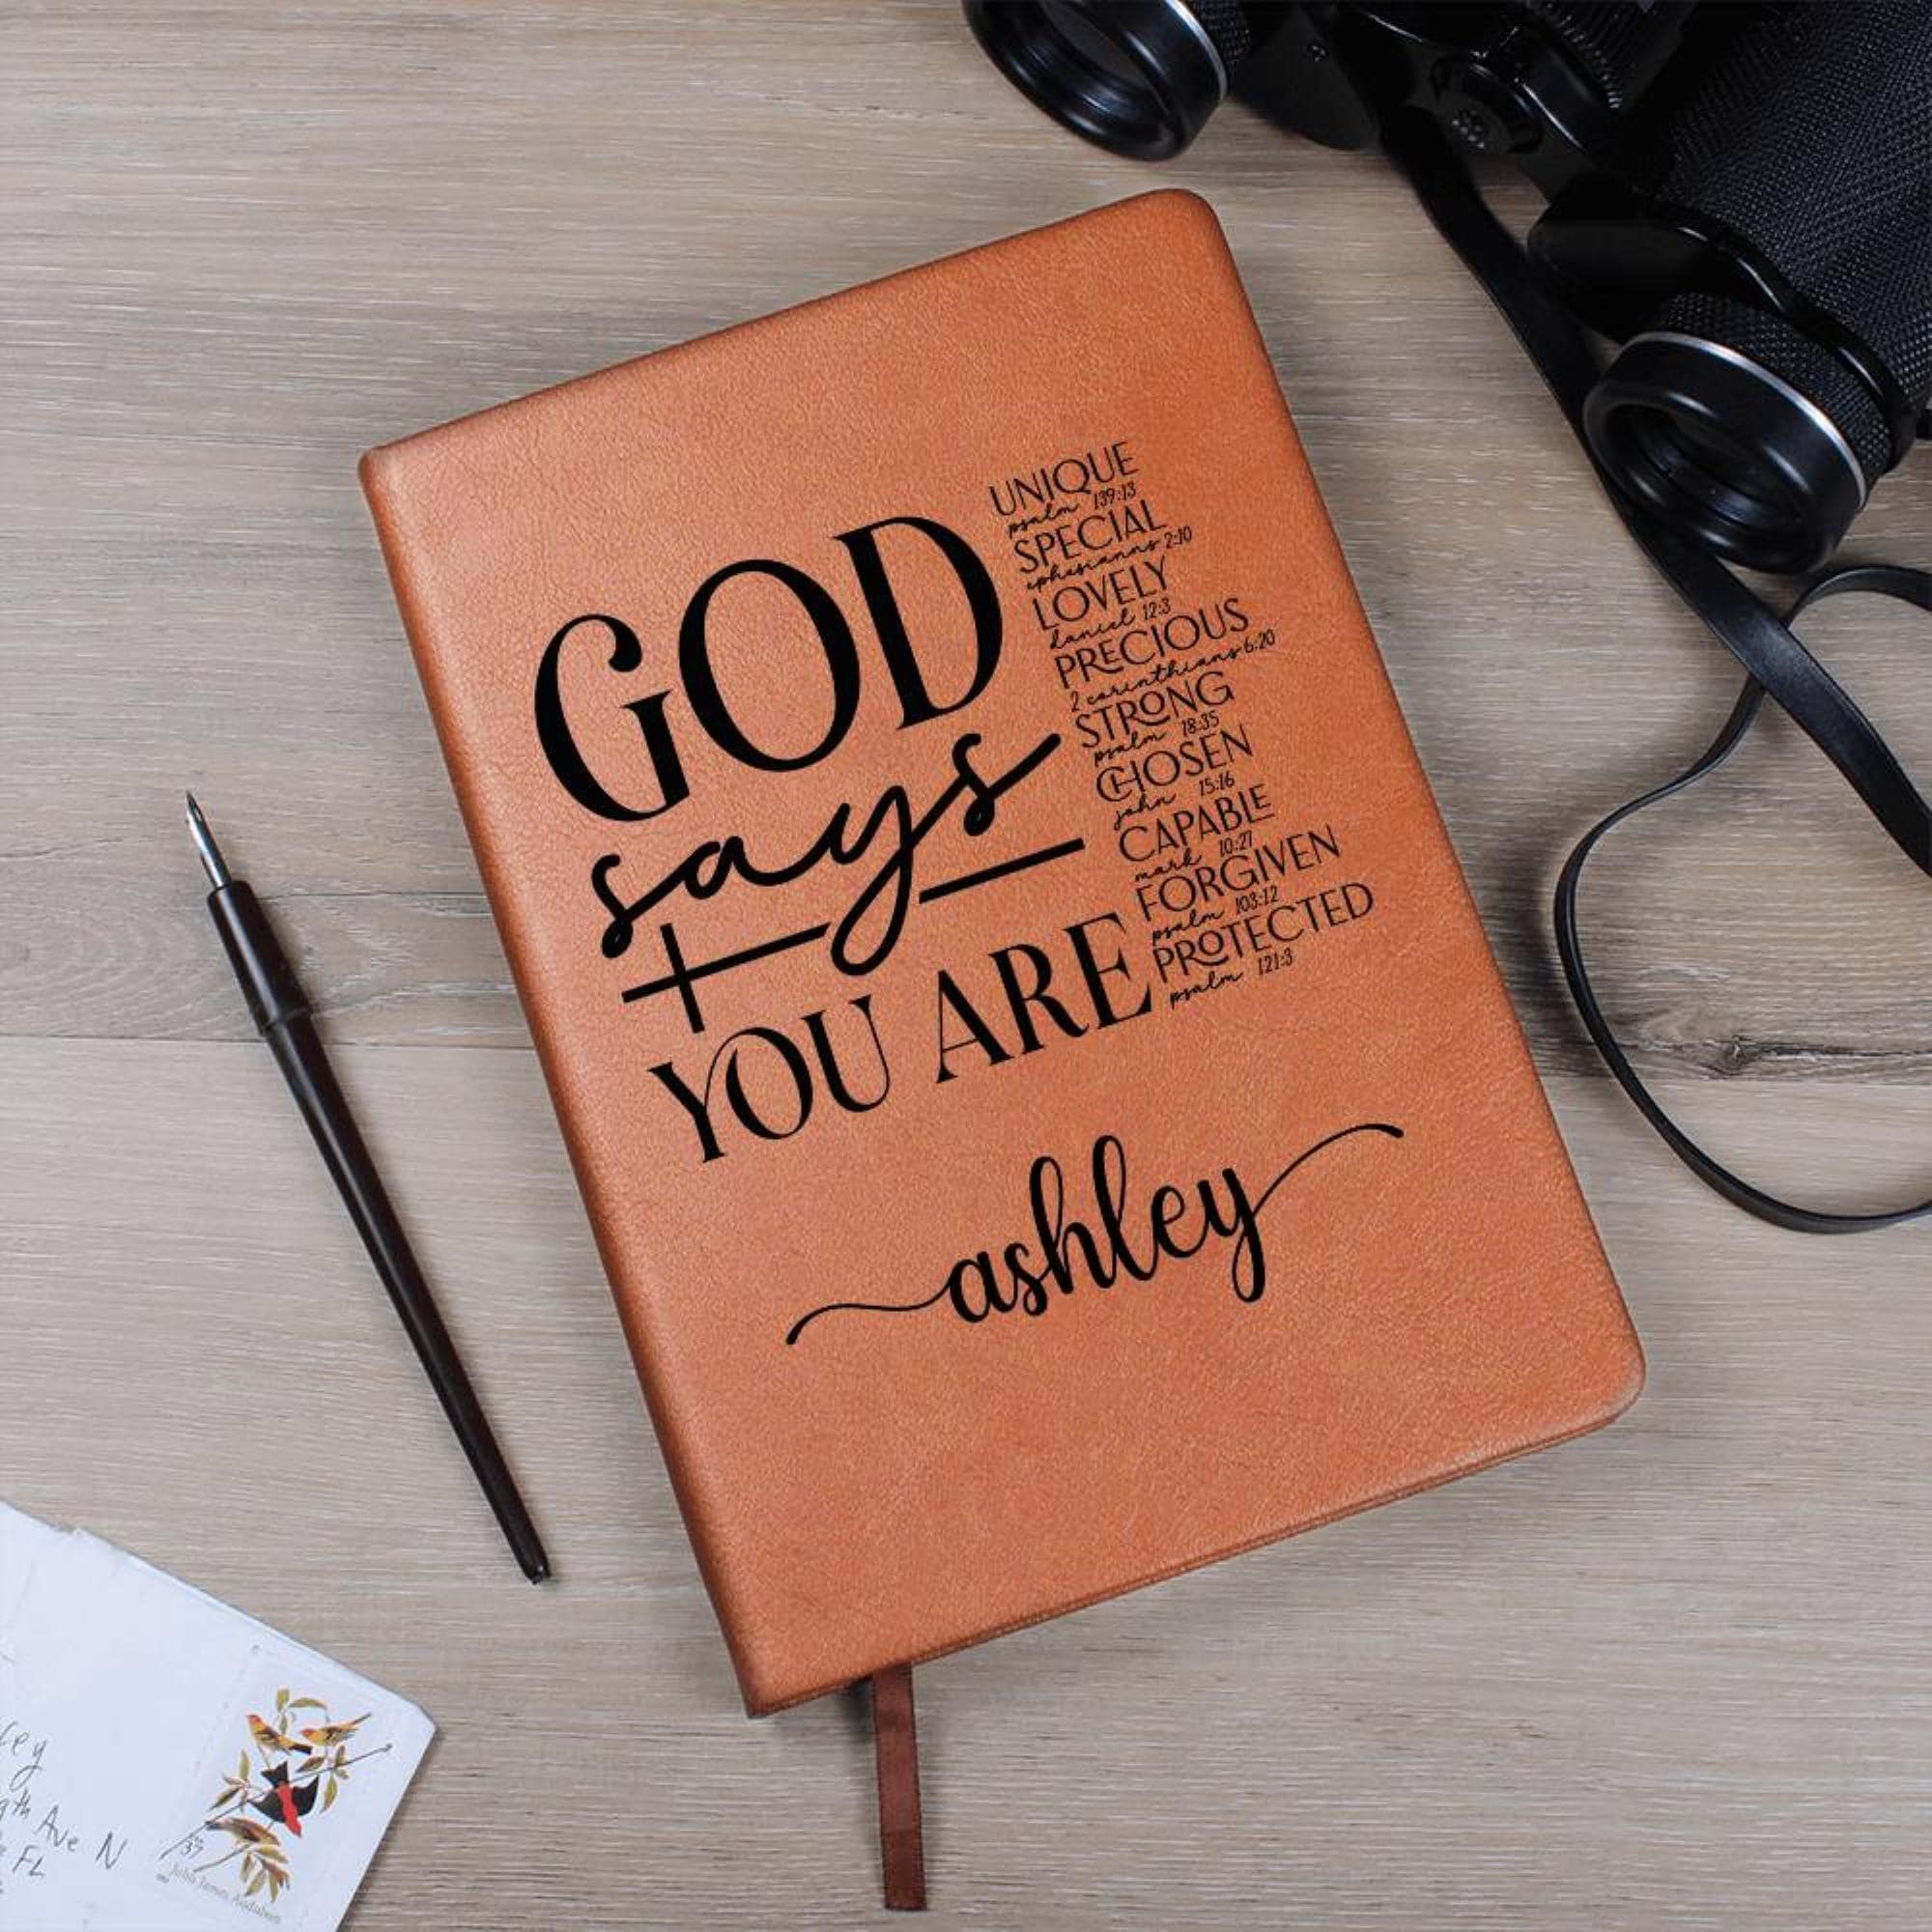 GOD
says
YOU ARE
UNIQUE
psalm 139:13
SPECIAL
ephesianns 2:10
LOVELY
daniel 12:3
PRECIOUS
2 corinthians 6:20
STRONG
psalm 18:35
CHOSEN
john 15:16
CAPABLE
mark 10:27
FORGIVEN
psalm 103:12
PROTECTED
psalm 121:3
ashley
ley
9th Ave N
FL
37
John James Audubon